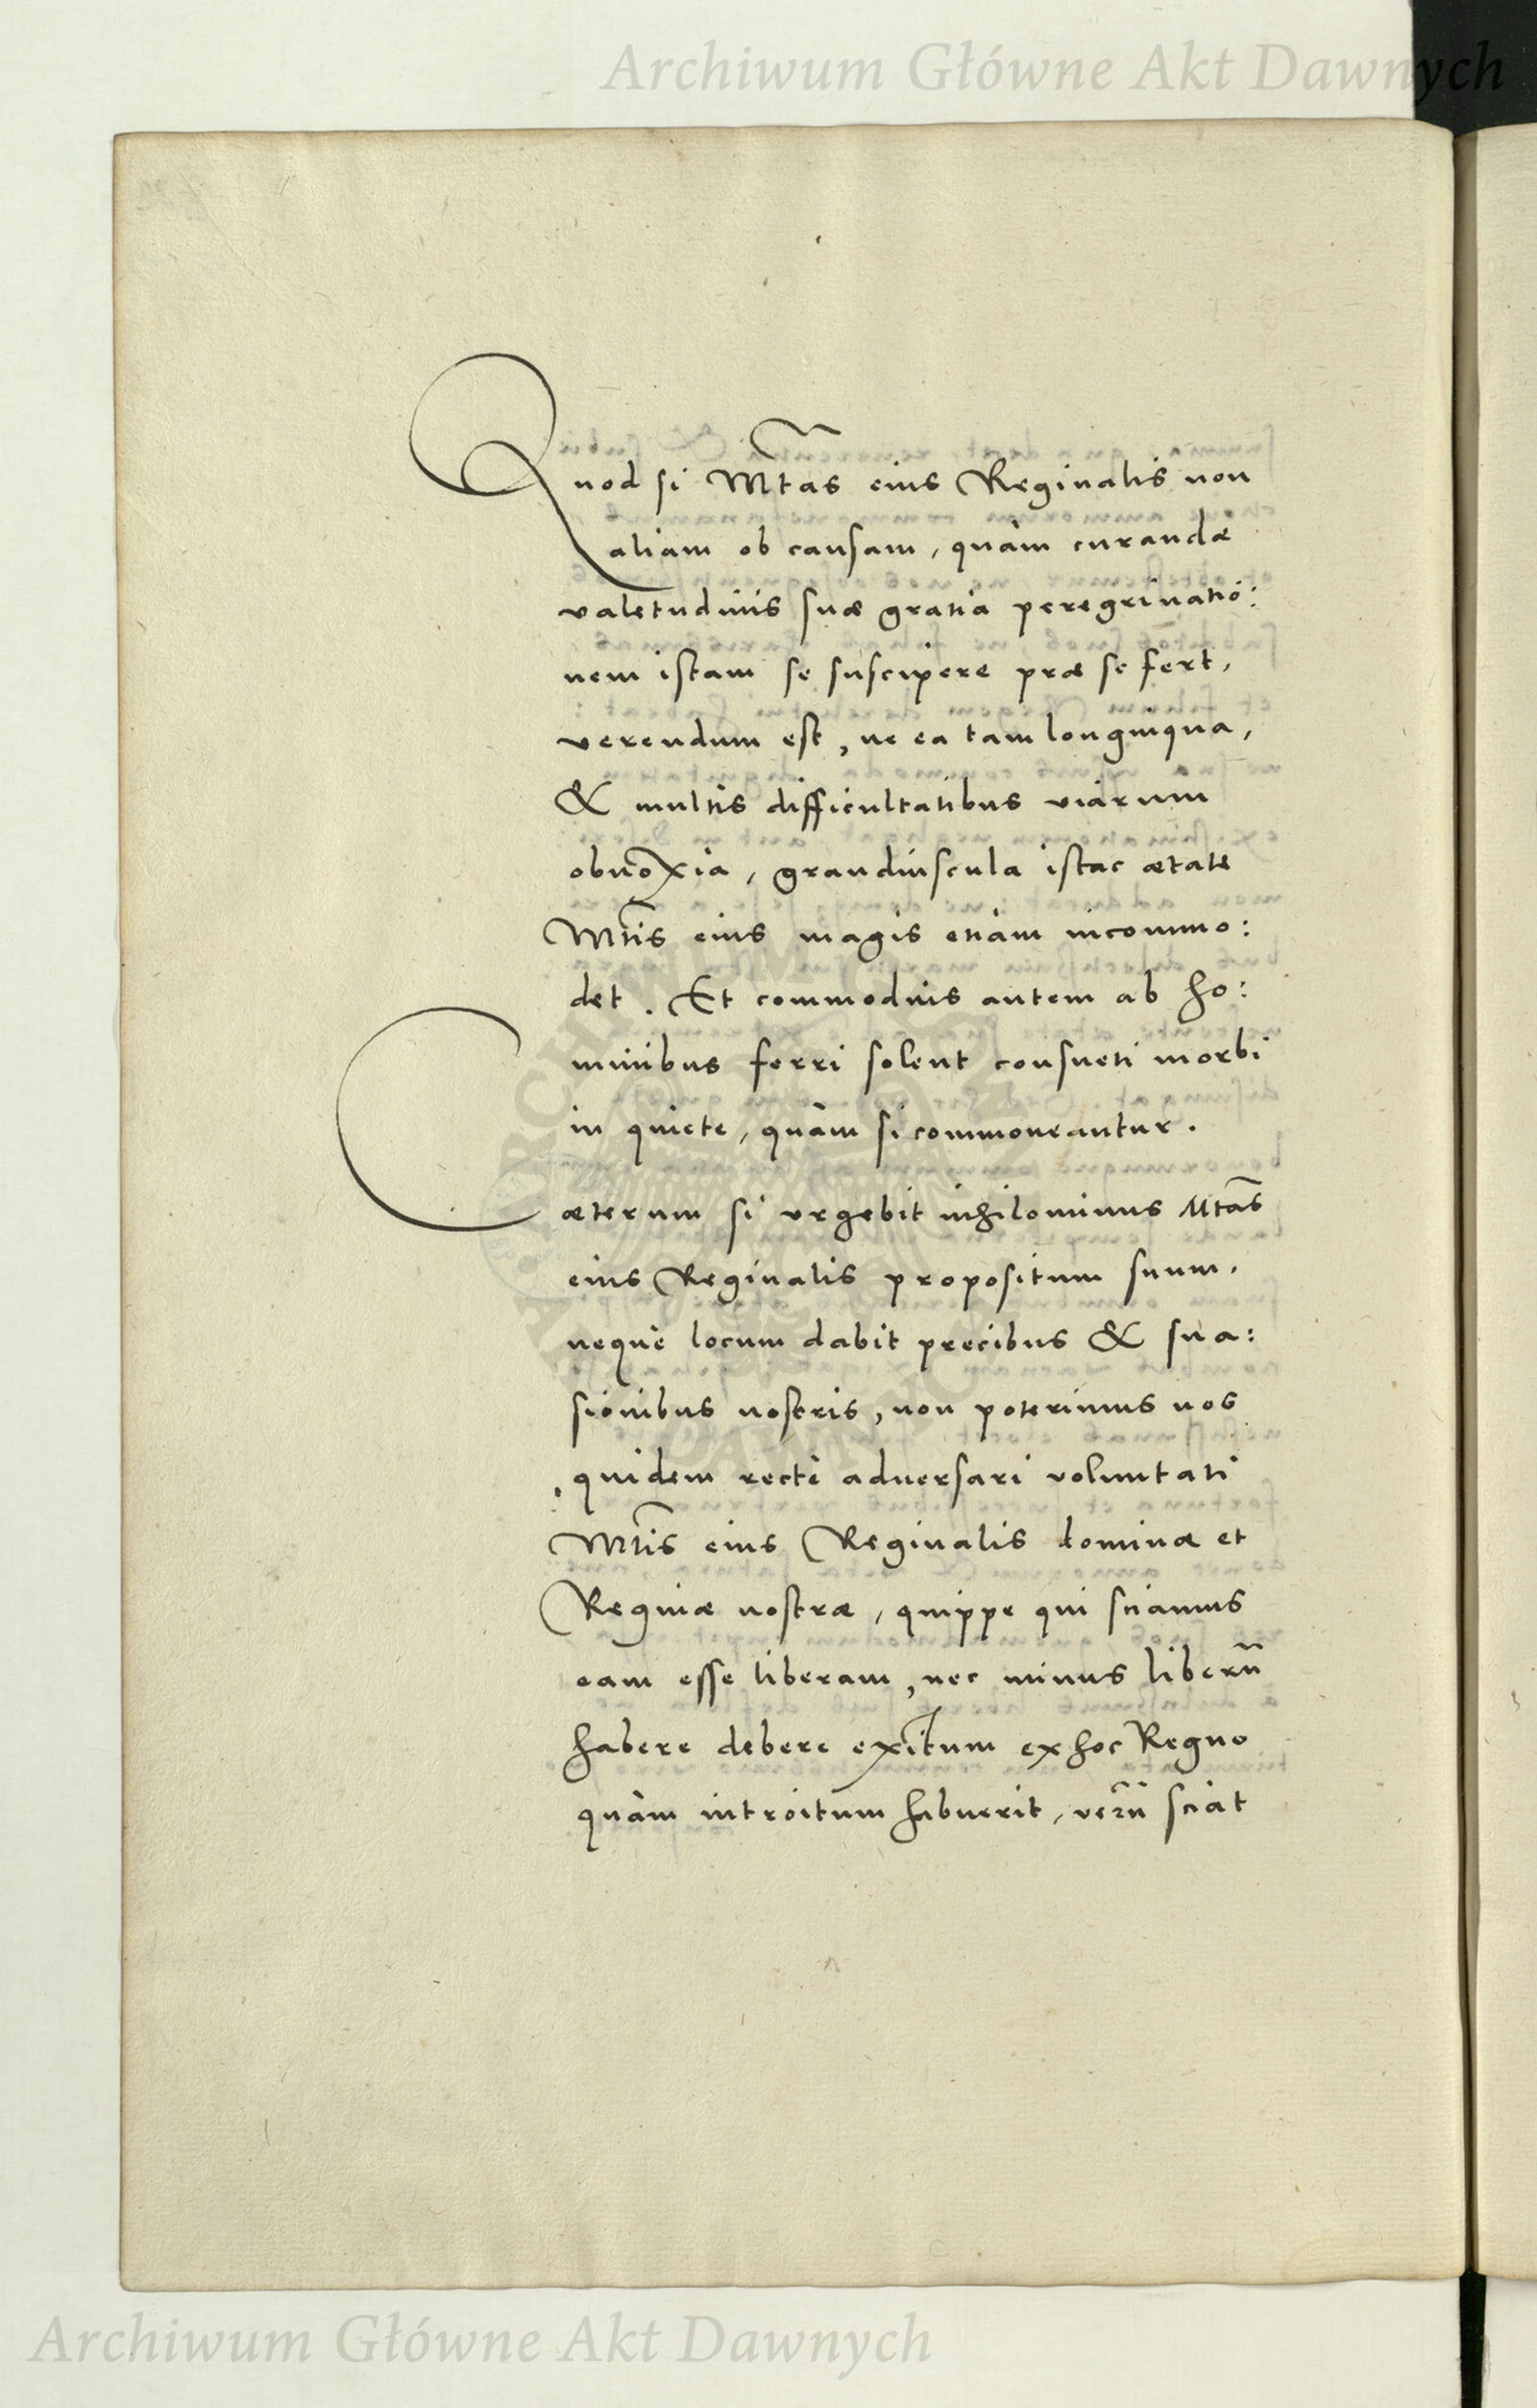 Archiwum Główne Akt Dawnych
Quod si Mtas eius Reginalis non
aliam ob causam, quàm curandæ
valetudinis suæ gratia peregrinatio:
nem istam se suscipere præ se fert,
verendum est, ne ea tam longinqua,
& multis difficultatibus viarum
obnoxia, grandiuscula istac ætate
Mtis eius magis etiam incommo:
det. Et commodius autem ab ho:
minibus ferri solent consueti morbi
in quiete, quàm si commoueantur.
Cæterum si vrgebit nihilominus Mtas
eius Reginalis propositum suum,
neque locum dabit precibus & sua:
sionibus nostris, non poterimus nos
quidem recte aduersari voluntati
Mtis eius Reginalis dominæ et
Reginæ nostræ, quippe qui sciamus
eam esse liberam, nec minus liberū
habere debere exitum ex hoc Regno
quàm introitum habuerit, verū sciat
Archiwum Główne Akt Dawnych